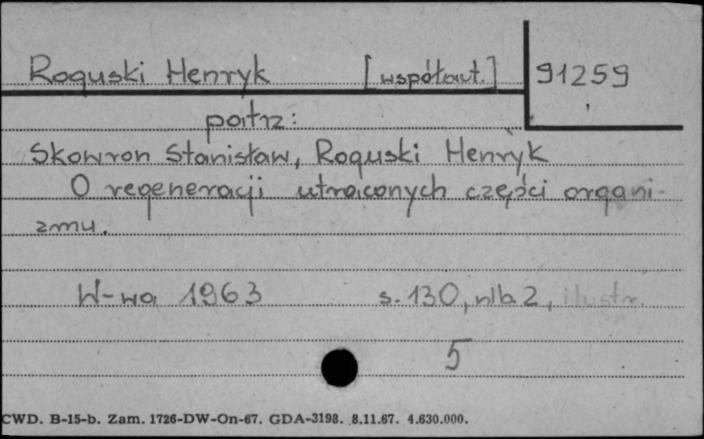 Roguski Henryk [współaut.] 91259
patrz:
Skowron Stanisław, Roguski Henryk
O regeneracji utraconych części organi-
zmu.
W-wa 1963 s. 130, nlb. 2, ilustr.
5
CWD. B-15-b. Zam. 1726-DW-On-67. GDA-3198. 8.11.67. 4.630.000.